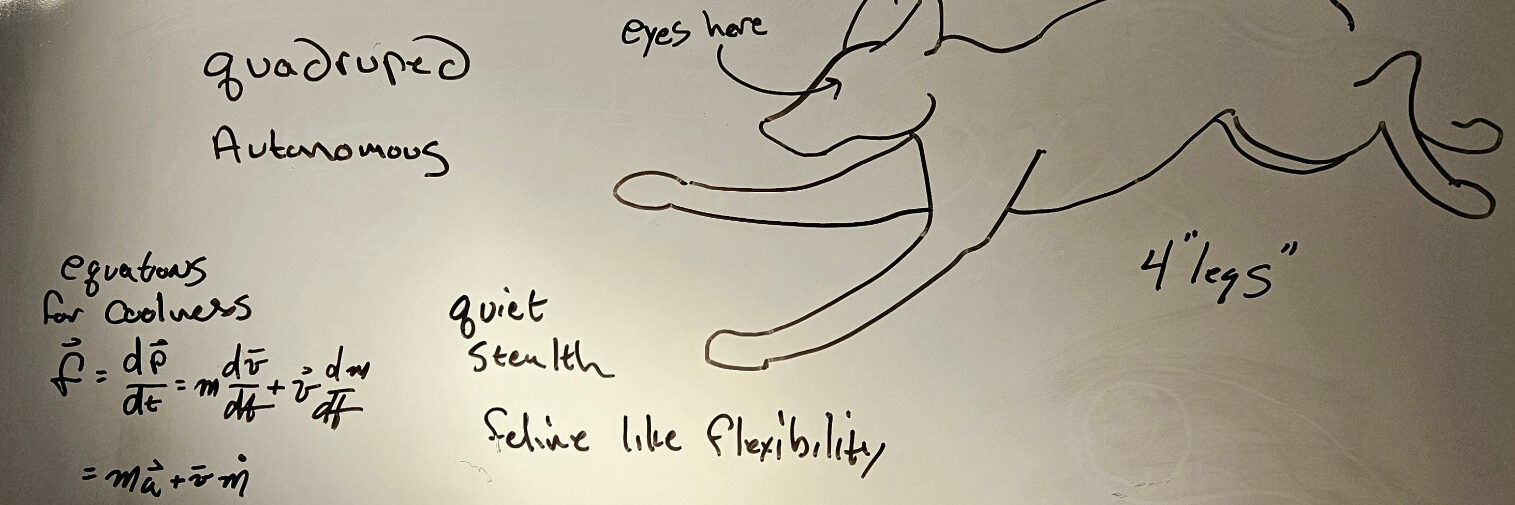 eyes here
quadruped
Autonomous
4 "legs"
equations
for coolness
f⃗ = dp⃗/dt = m dv̄/dt + v⃗ dm/dt
= ma⃗ + v̄ ṁ
quiet
stealth
feline like flexibility